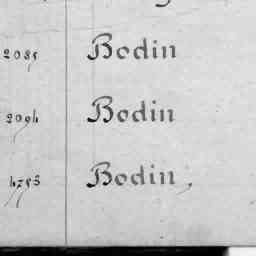 2085 Bodin
2094 Bodin
Bodin,